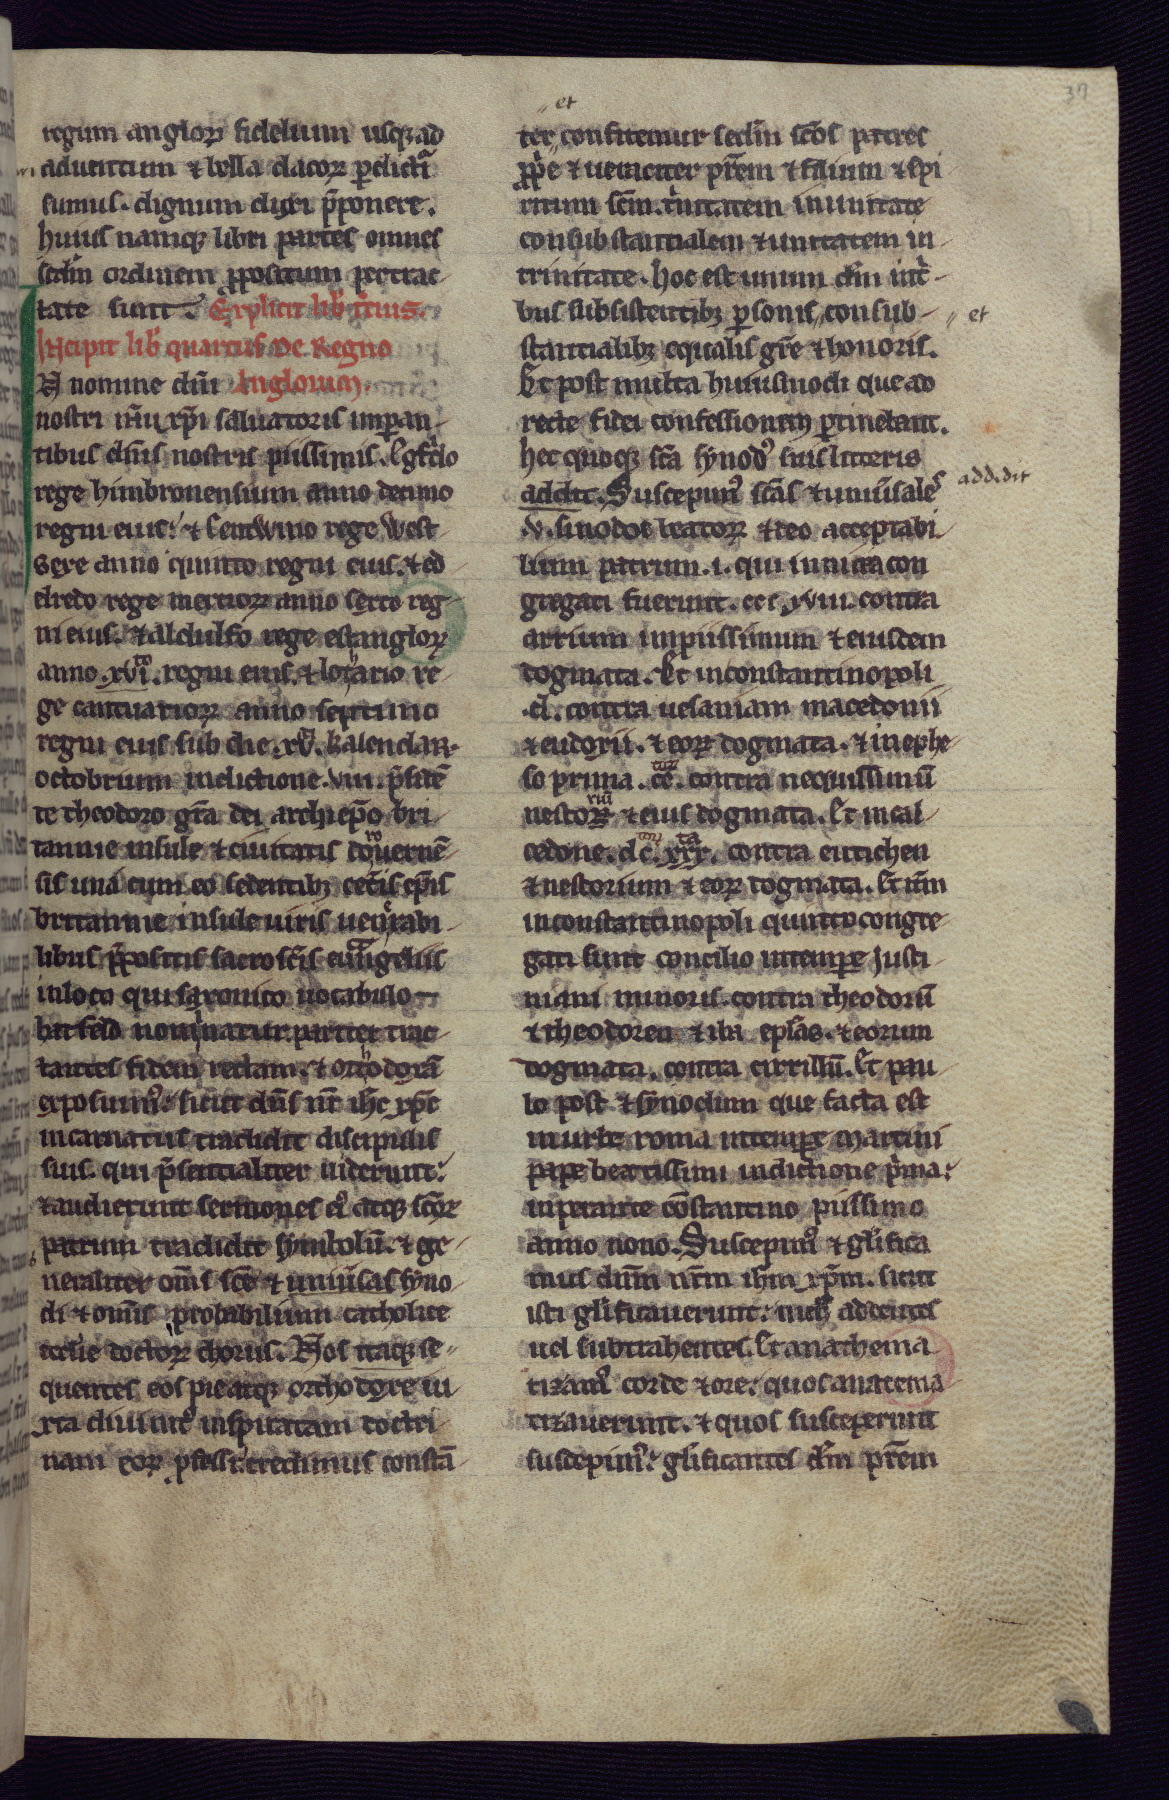 37
regum anglorꝝ fidelium usq; ad
aduentum & bella dacorꝝ ꝑdictũ
sumus. dignum duxi p̃ponere.
huius namq; libri partes omnes
sc̃dm ordinem p̃positum pertrac-
tate sunt. Explicit lib̃ t̃cius.
Incipit lib̃ quartus De Regno
IN nomine dñi Anglorum.
nostri ih̃u xp̃i saluatoris imperan-
tibus dñis nostris piissimis. Egfrido
rege himbronensium anno decimo
regni eius. & sentwino rege west
sexe anno quinto regni eius. & ed
dredo rege merciorꝝ anno sexto reg-
ni eius. & aldulfo rege estanglorꝝ
anno .xvi. regni eius. & lothario re-
ge cantuariorꝝ anno septimo
regni eius sub die .xv. kalendar
octobrium indictione .viii. p̃siden̄
te theodoro gr̃a dei archiep̃o bri-
tannie insule & ciuitatis dorouernẽ-
sis una cum eo sedentib; cet̃is ep̃is
britannie insule uiris uenerabi-
libus p̃positis sacroscĩs euuangeliis
in loco qui saxonico uocabulo
hatfeld nominatur. pariter trac-
tantes fidem rectam. & orthodoxã
exposuimꝰ. sicut dñs nr̃ ihc̃ xp̃c
incarnatus tradidit discipulis
suis. qui p̃sentialiter uiderunt.
& audierunt sermones eiꝰ atq; scõꝝ
patrum tradidit symbolũ. & ge-
neraliter om̃s sc̃e & uniũsas syno-
di & om̃is probabilium catholice
eccl̃ie doctorꝝ chorus. Nos itaq; se-
quentes eos pie atq; orthodoxe iu-
xta diuinitꝰ inspiratam doctri-
nam eorꝝ p̃fessi. credimus constã-
et
ter, confitemur sc̃dm sc̃os patres
pp̃e & ueraciter pr̃em & filium & spi-
ritum sc̃m. trinitatem in unitate
consubstantialem & unitatem in-
trinitate. hoc est unum dm̃ in t̃-
bus subsistentib; ꝑsonis, consub-
et
stantialib; equalis gl̃e & honoris.
Et post multa huiusmodi que ad
recte fidei confessionem ꝑtinebant.
hec quoq; sc̃a synodꝰ suis litteris
addit. Suscepimꝰ sc̃as & uniũsales
add,dit
.v. sinodos beatorꝝ & deo acceptabi-
lium patrum. i. qui in nicea con
gregati fuerunt .ccc.xviii. contra
arrium impiissimum & eiusdem
dogmata. Et in constantinopoli
.cl. contra uesaniam macedonii
& eudoxii. & eorꝝ dogmata. & in ephe-
so prima .cc. contra nequissimũ
nestoriũ & eius dogmata. Et in cal-
cedone .dc.xxx. contra eutichen
& nestorium & eorꝝ dogmata. Et itm̃
in constantinopoli quinto congre-
gati sunt concilio in tempore Justi-
niani minoris. contra theodorũ
& theodoren & iba ep̃las. & eorum
dogmata. contra cirrillũ. Et pau-
lo post & synodum que facta est
in urbe roma in tempꝛe Martini
pape beatissimi indictione p̃ma.
inperante cõstantino piissimo
anno nono. Suscepimꝰ & gl̃ifica
mus dñm nr̃m ih̃m xp̃m. sicut
isti gl̃ificauerunt. nich̃ addentes
uel subtrahentes. Et anathema
tizamꝰ corde & ore. quos anatema
tizauerunt. & quos susceperunt
suscepimꝰ. gl̃ificantes dm̃ pr̃em